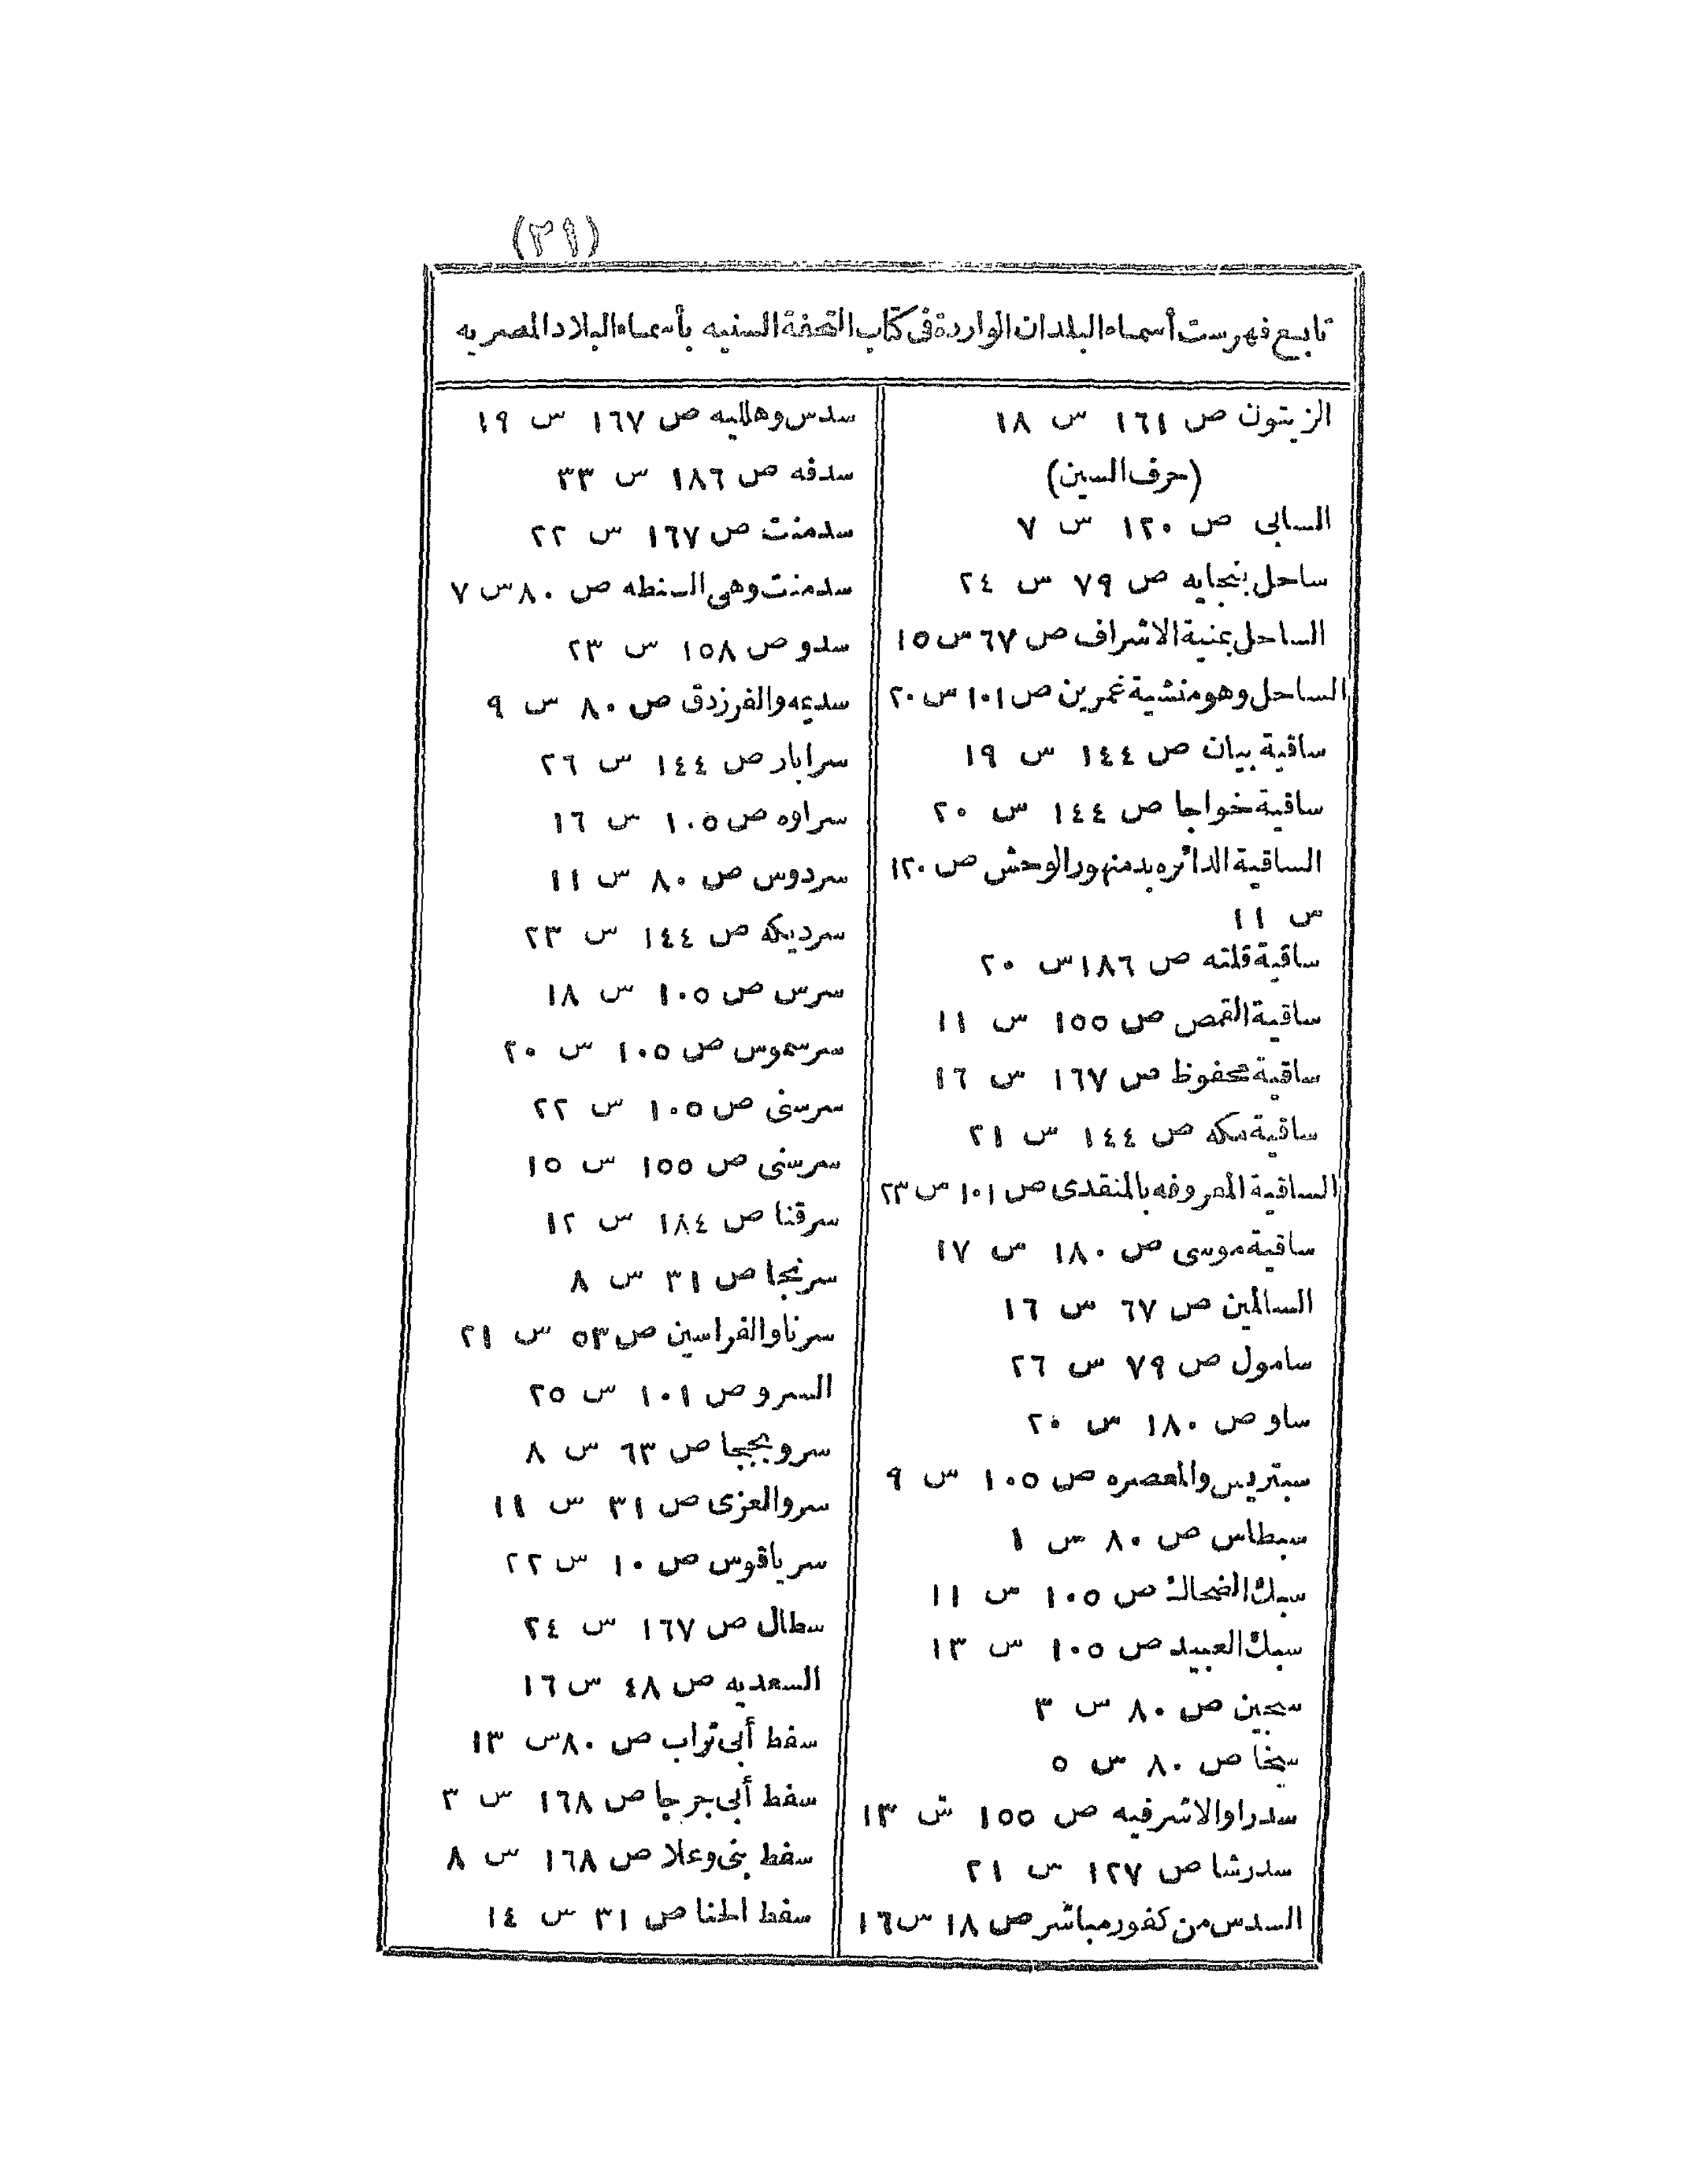 (٣١)
تابع فهرست أسماء البلدان الواردة فى كتاب التحفة السنيه بأسماء البلاد المصريه
الزيتون ص ١٦١ س ١٨
(حرف السين)
السابى ص ١٢٠ س ٧
ساحل بنجايه ص ٧٩ س ٢٤
الساحل بمنية الاشراف ص ٦٧ س ١٥
الساحل وهو منشية غمرين ص ١٠١ س ٢٠
ساقية بيان ص ١٤٤ س ١٩
ساقية خواجا ص ١٤٤ س ٢٠
الساقية الدائره بدمنهور الوحش ص ١٢٠
س ١١
ساقية قلته ص ١٨٦ س ٢٠
ساقية القمص ص ١٥٥ س ١١
ساقية محفوظ ص ١٦٧ س ١٦
ساقية مكه ص ١٤٤ س ٢١
الساقية المعروفه بالمنقدى ص ١٠١ س ٢٣
ساقية موسى ص ١٨٠ س ١٧
السالمين ص ٦٧ س ١٦
سامول ص ٧٩ س ٢٦
ساو ص ١٨٠ س ٢٠
سبتريس والمعصره ص ١٠٥ س ٩
سبطاس ص ٨٠ س ١
سبك الضحاك ص ١٠٥ س ١١
سبك العبيد ص ١٠٥ س ١٣
سجين ص ٨٠ س ٣
سخا ص ٨٠ س ٥
سدرا والاشرفيه ص ١٥٥ ش ١٣
سدرشا ص ١٢٧ س ٢١
السدس من كفور مباشر ص ١٨ س ١٦
سدس وهلليه ص ١٦٧ س ١٩
سدفه ص ١٨٦ س ٣٣
سدمنت ص ١٦٧ س ٢٢
سدمنت وهى السنطه ص ٨٠ س ٧
سدو ص ١٥٨ س ٢٣
سديمه والفرزدق ص ٨٠ س ٩
سراباد ص ١٤٤ س ٢٦
سراوه ص ١٠٥ س ١٦
سردوس ص ٨٠ س ١١
سرديكه ص ١٤٤ س ٢٣
سرس ص ١٠٥ س ١٨
سرسموس ص ١٠٥ س ٢٠
سرسنى ص ١٠٥ س ٢٢
سرسنى ص ١٥٥ س ١٥
سرقنا ص ١٨٤ س ١٢
سرنجا ص ٣١ س ٨
سرنا والفراسين ص ٥٣ س ٢١
السرو ص ١٠١ س ٢٥
سرو بججا ص ٦٣ س ٨
سرو العزى ص ٣١ س ١١
سرياقوس ص ١٠ س ٢٢
سطال ص ١٦٧ س ٢٤
السعديه ص ٤٨ س ١٦
سفط أبى تراب ص ٨٠ س ١٣
سفط أبى جرجا ص ١٦٨ س ٣
سفط بنى وعلا ص ١٦٨ س ٨
سفط الحنا ص ٣١ س ١٤